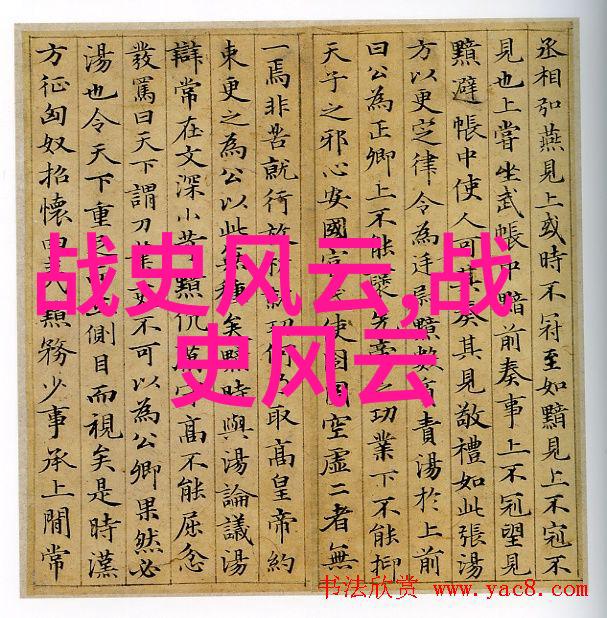 丞相弘燕見上或時不冠至如黯見上不冠不
見也上嘗坐武帳中黯前奏事上不冠望見
黯避帳中使人可其奏其見敬禮如此張湯
方以更定律令為廷尉黯數質責湯於上前
曰公為正卿上不能襃先帝之功業下不能抑
天子之邪心安國富民使囹圄空虛二者無
一焉非苦就行放析就功何乃取高皇帝約
束更之為公以此無種矣黯時與湯論議湯
辯常在文深小苛黯伉厲守高不能屈忿
發罵曰天下謂刀筆吏不可以為公卿果然必
湯也令天下重足而立側目而視矣是時漢
方征匈奴招懷四夷黯務少事承上閒常
战史风云,战
史风云
书法欣赏 www.yac8.com